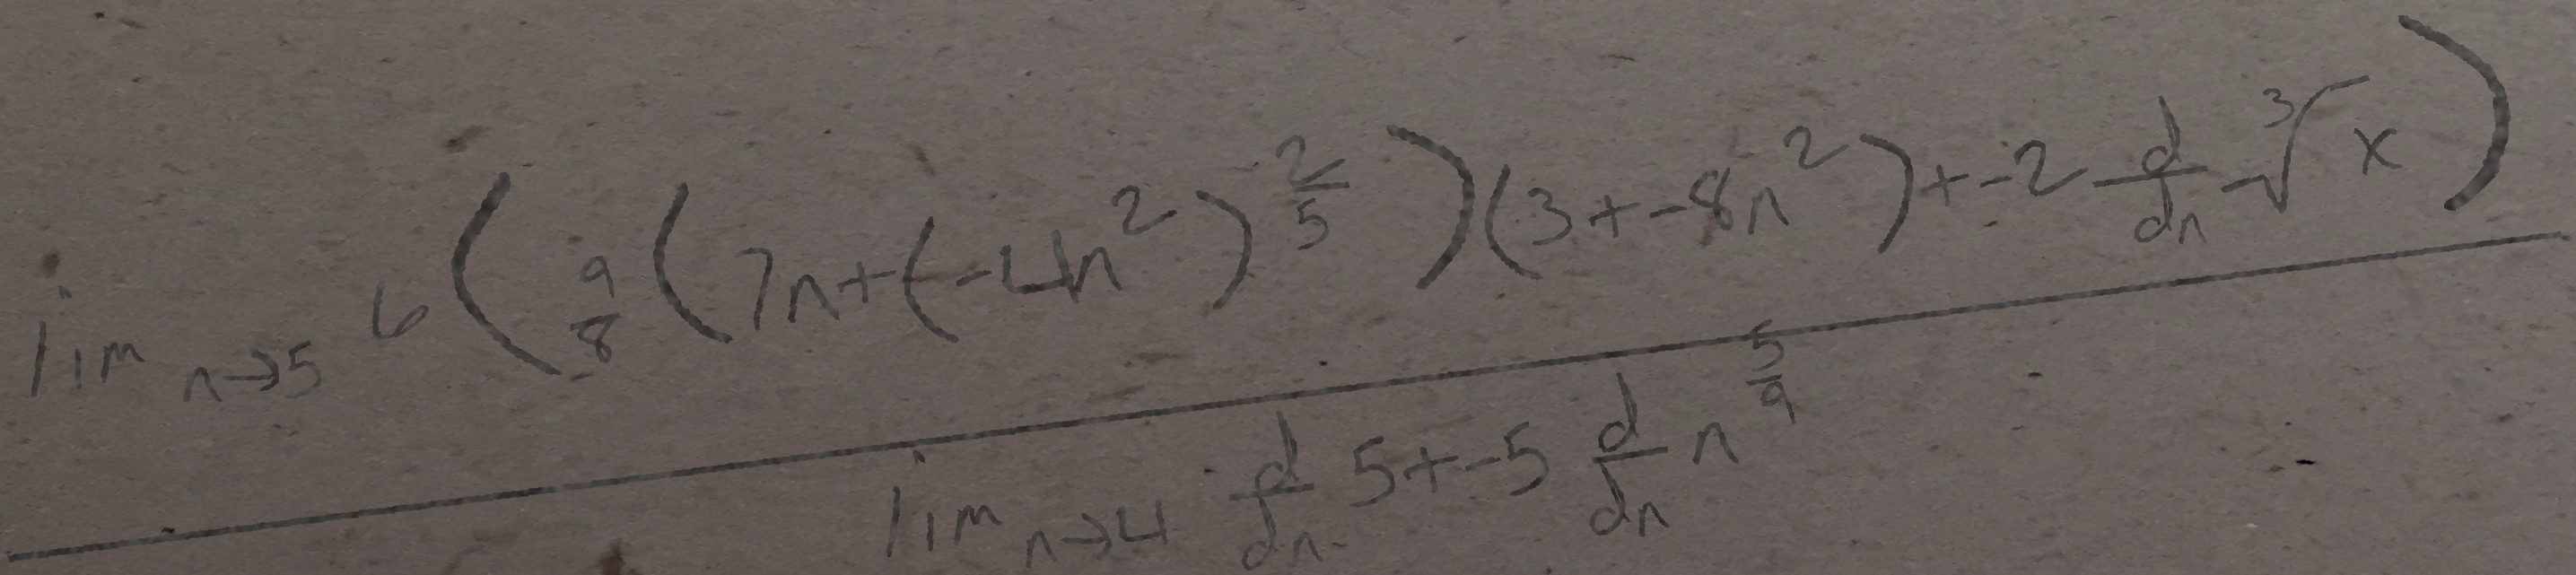 lim n→5 6(9/8(7n+(-4n²)^(2/5))(3+-8n²)+-2 d/dn ∛x)
lim n→4 d/dn 5+-5 d/dn n^(5/9)